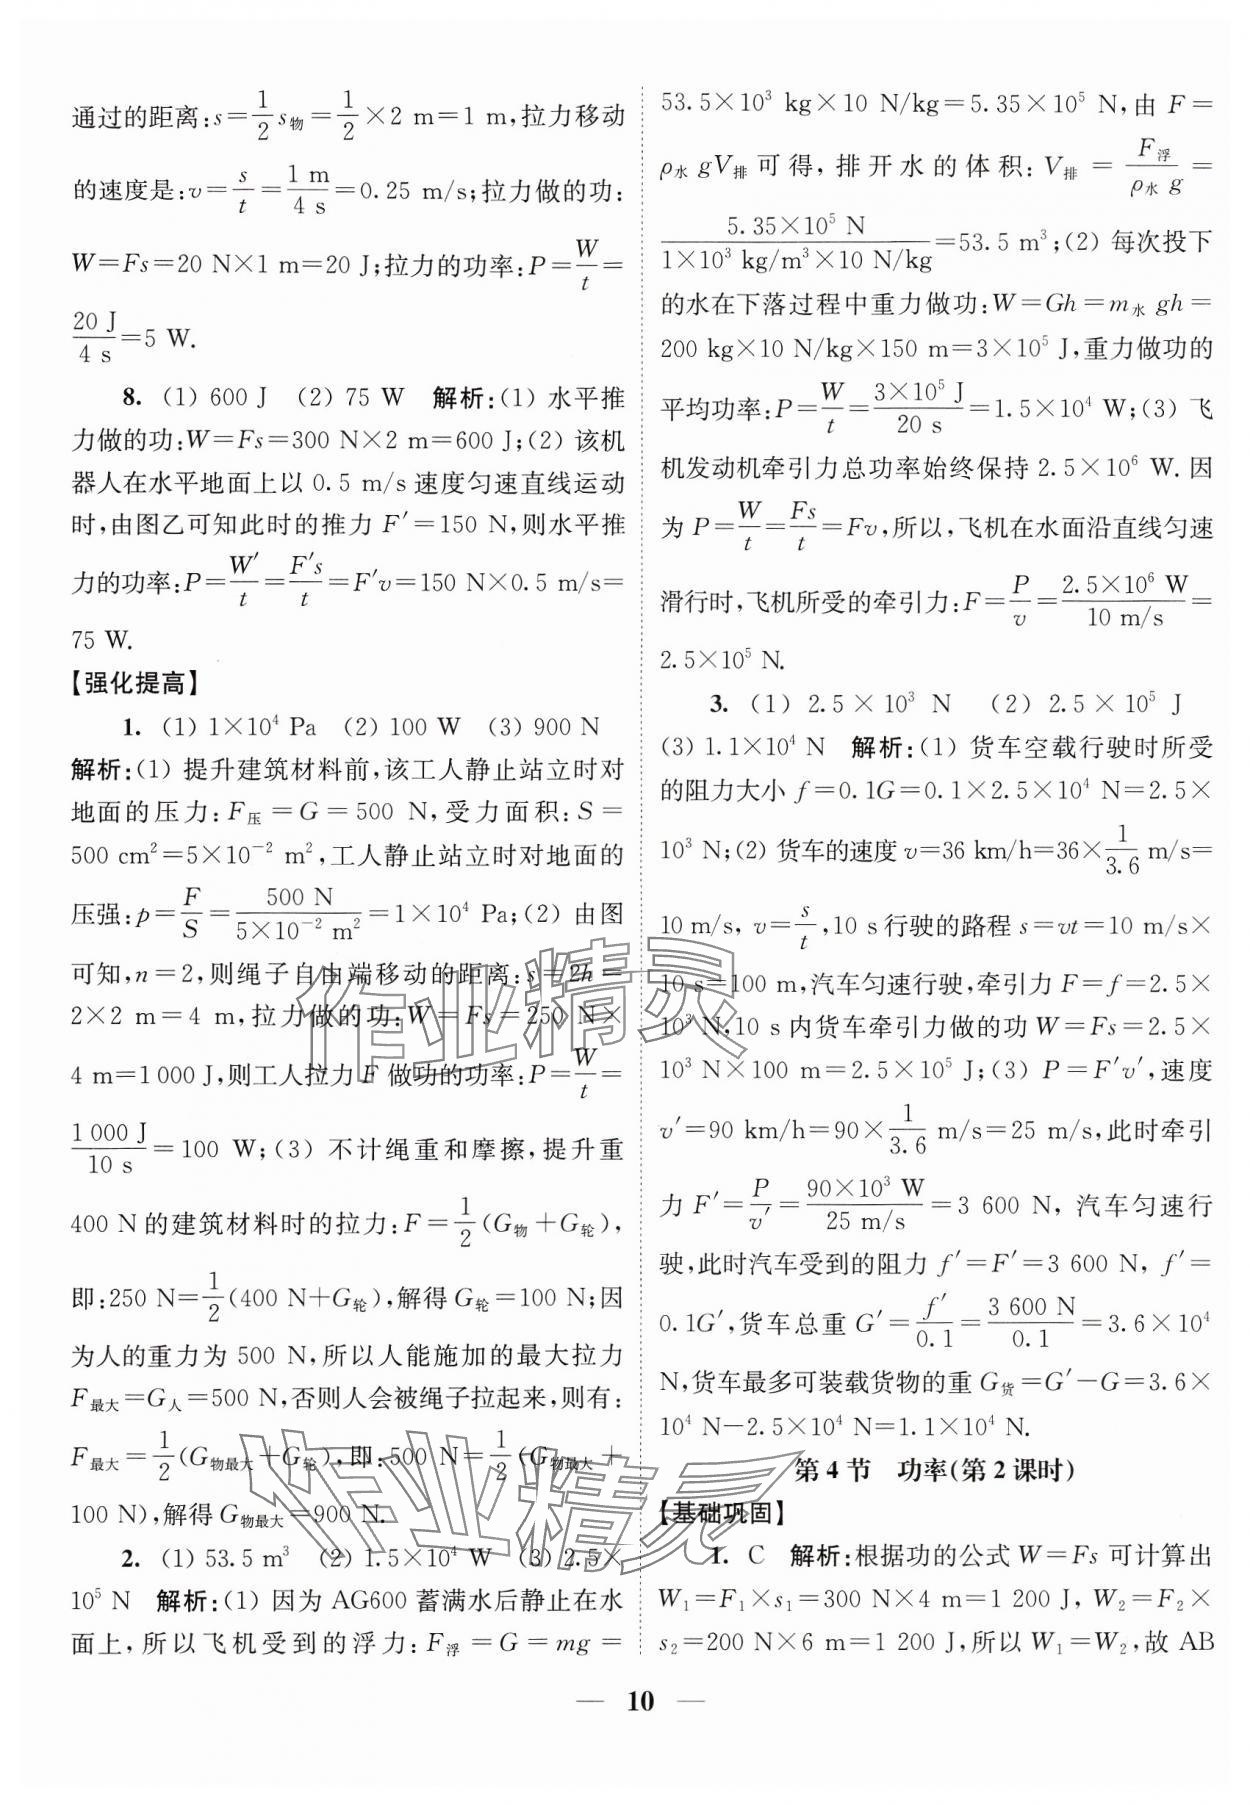 通过的距离:s=1/2 s物=1/2×2 m=1 m,拉力移动
的速度是:v=s/t=1 m/4 s=0.25 m/s;拉力做的功:
W=Fs=20 N×1 m=20 J;拉力的功率:P=W/t=
20 J/4 s=5 W.
8. (1) 600 J (2) 75 W 解析:(1) 水平推
力做的功:W=Fs=300 N×2 m=600 J;(2) 该机
器人在水平地面上以 0.5 m/s 速度匀速直线运动
时,由图乙可知此时的推力 F′=150 N,则水平推
力的功率:P=W′/t=F′s/t=F′v=150 N×0.5 m/s=
75 W.
【强化提高】
1. (1) 1×10⁴ Pa (2) 100 W (3) 900 N
解析:(1) 提升建筑材料前,该工人静止站立时对
地面的压力:F压=G=500 N,受力面积:S=
500 cm²=5×10⁻² m²,工人静止站立时对地面的
压强:p=F/S=500 N/5×10⁻² m²=1×10⁴ Pa;(2) 由图
可知,n=2,则绳子自由端移动的距离:s=2h=
2×2 m=4 m,拉力做的功:W=Fs=250 N×
4 m=1 000 J,则工人拉力 F 做功的功率:P=W/t=
1 000 J/10 s=100 W;(3) 不计绳重和摩擦,提升重
400 N 的建筑材料时的拉力:F=1/2(G物+G轮),
即:250 N=1/2(400 N+G轮),解得 G轮=100 N;因
为人的重力为 500 N,所以人能施加的最大拉力
F最大=G人=500 N,否则人会被绳子拉起来,则有:
F最大=1/2(G物最大+G轮),即:500 N=1/2(G物最大+
100 N),解得 G物最大=900 N.
2. (1) 53.5 m³ (2) 1.5×10⁴ W (3) 2.5×
10⁵ N 解析:(1) 因为 AG600 蓄满水后静止在水
面上,所以飞机受到的浮力:F浮=G=mg=
53.5×10³ kg×10 N/kg=5.35×10⁵ N,由 F=
ρ水 gV排 可得,排开水的体积:V排=F浮/ρ水 g=
5.35×10⁵ N/1×10³ kg/m³×10 N/kg=53.5 m³;(2) 每次投下
的水在下落过程中重力做功:W=Gh=m水 gh=
200 kg×10 N/kg×150 m=3×10⁵ J,重力做功的
平均功率:P=W/t=3×10⁵ J/20 s=1.5×10⁴ W;(3) 飞
机发动机牵引力总功率始终保持 2.5×10⁶ W.因
为 P=W/t=Fs/t=Fv,所以,飞机在水面沿直线匀速
滑行时,飞机所受的牵引力:F=P/v=2.5×10⁶ W/10 m/s=
2.5×10⁵ N.
3. (1) 2.5×10³ N (2) 2.5×10⁵ J
(3) 1.1×10⁴ N 解析:(1) 货车空载行驶时所受
的阻力大小 f=0.1G=0.1×2.5×10⁴ N=2.5×
10³ N;(2) 货车的速度 v=36 km/h=36×1/3.6 m/s=
10 m/s, v=s/t,10 s 行驶的路程 s=vt=10 m/s×
10 s=100 m,汽车匀速行驶,牵引力 F=f=2.5×
10³ N,10 s 内货车牵引力做的功 W=Fs=2.5×
10³ N×100 m=2.5×10⁵ J;(3) P=F′v′,速度
v′=90 km/h=90×1/3.6 m/s=25 m/s,此时牵引
力 F′=P/v′=90×10³ W/25 m/s=3 600 N,汽车匀速行
驶,此时汽车受到的阻力 f′=F′=3 600 N, f′=
0.1G′,货车总重 G′=f′/0.1=3 600 N/0.1=3.6×10⁴
N,货车最多可装载货物的重 G货=G′-G=3.6×
10⁴ N-2.5×10⁴ N=1.1×10⁴ N.
第 4 节 功率(第 2 课时)
【基础巩固】
1. C 解析:根据功的公式 W=Fs 可计算出
W₁=F₁×s₁=300 N×4 m=1 200 J, W₂=F₂×
s₂=200 N×6 m=1 200 J,所以 W₁=W₂,故 AB
— 10 —
作业精灵
作业精灵